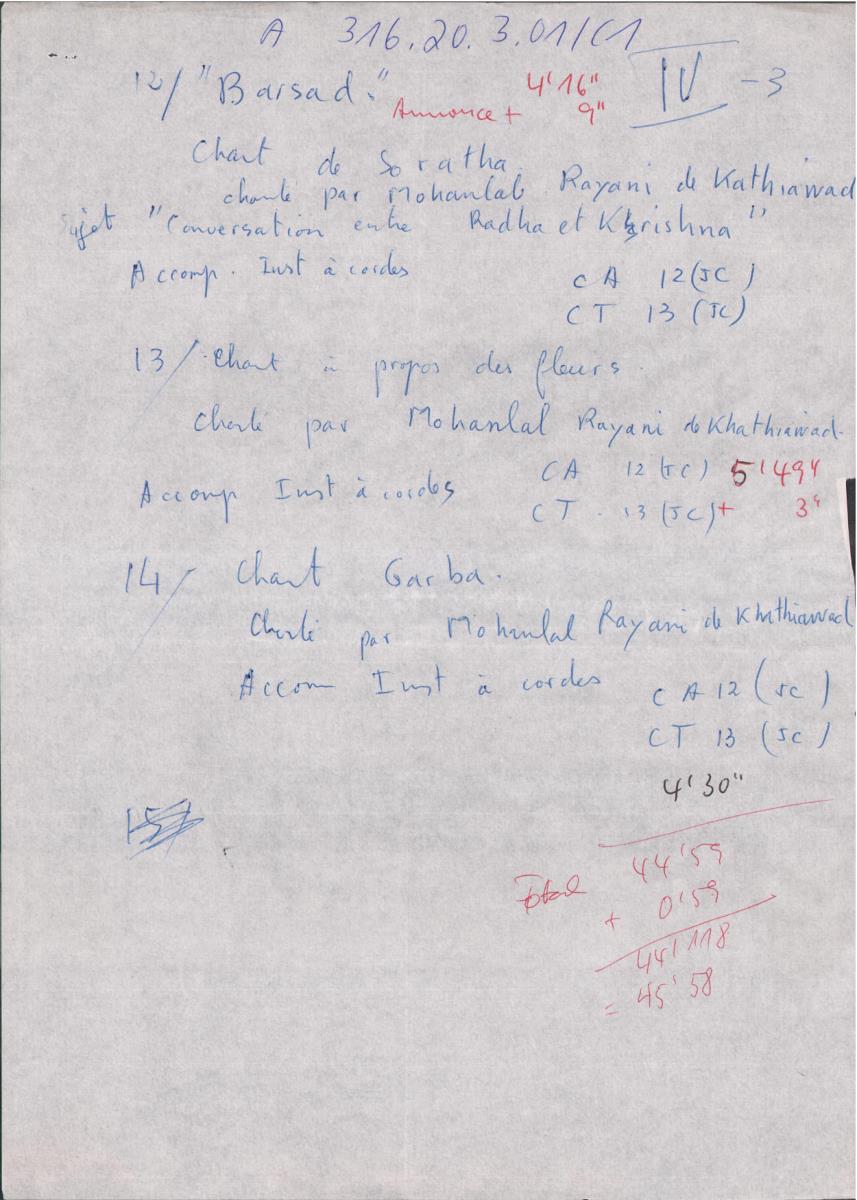 A 316.20.3.01/C1
12/ "Barsad." 4'16" IV -3
Annonce + 9"
Chant de Soratha.
chanté par Mohanlal Rayani de Kathiawad
Sujet "Conversation entre Radha et Khrishna"
Accomp. Inst à cordes CA 12 (JC)
CT 13 (JC)
13/ Chant à propos des fleurs.
Chanté par Mohanlal Rayani de Khathiawad.
CA 12 (JC) 5'49"
Accomp Inst à cordes
CT. 13 (JC) + 3"
14/ Chant Garba.
Chanté par Mohanlal Rayani de Khathiawad
Accom Inst à cordes CA 12 (JC)
CT 13 (JC)
4'30"
15/
Total 44'59
+ 0'59
44'118
= 45'58